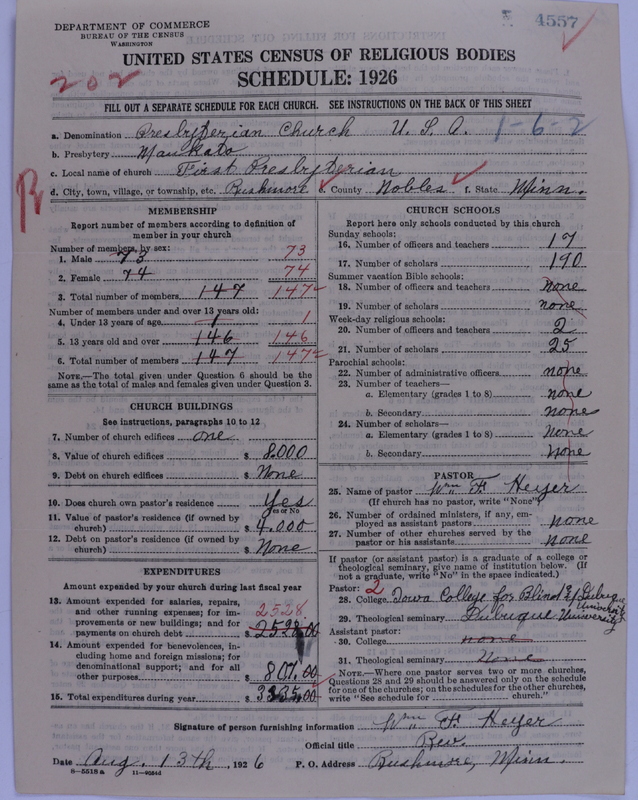 DEPARTMENT OF COMMERCE
BUREAU OF THE CENSUS
WASHINGTON
4557
UNITED STATES CENSUS OF RELIGIOUS BODIES
SCHEDULE: 1926
202
FILL OUT A SEPARATE SCHEDULE FOR EACH CHURCH. SEE INSTRUCTIONS ON THE BACK OF THIS SHEET
a. Denomination Presbyterian Church U. S. A. 1-6-2
b. Presbytery Mankato
c. Local name of church First Presbyterian
R
d. City, town, village, or township, etc. Rushmore e. County Nobles f. State Minn.
MEMBERSHIP
Report number of members according to definition of
member in your church
Number of members, by sex:
1. Male 73 73
2. Female 74 74
3. Total number of members 147 147
Number of members under and over 13 years old:
4. Under 13 years of age 1 1
5. 13 years old and over 146 146
6. Total number of members 147 147
NOTE.—The total given under Question 6 should be
same as the total of males and females given under Question 3.
CHURCH BUILDINGS
See instructions, paragraphs 10 to 12
7. Number of church edifices one
8. Value of church edifices $ 8000
9. Debt on church edifices $ None
10. Does church own pastor's residence Yes
Yes or No
11. Value of pastor's residence (if owned by
church) $ 4,000
12. Debt on pastor's residence (if owned by
church) $ None
EXPENDITURES
Amount expended by your church during last fiscal year
13. Amount expended for salaries, repairs,
and other running expenses; for im-
provements or new buildings; and for
payments on church debt 2528
$ 2598.00
14. Amount expended for benevolences, in-
cluding home and foreign missions; for
denominational support; and for all
other purposes $ 807.00
15. Total expenditures during year $ 3335.00
CHURCH SCHOOLS
Report here only schools conducted by this church
Sunday schools:
16. Number of officers and teachers 17
17. Number of scholars 190
Summer vacation Bible schools:
18. Number of officers and teachers none
19. Number of scholars none
Week-day religious schools:
20. Number of officers and teachers 2
21. Number of scholars 25
Parochial schools:
22. Number of administrative officers none
23. Number of teachers—
a. Elementary (grades 1 to 8) none
b. Secondary none
24. Number of scholars—
a. Elementary (grades 1 to 8) None
b. Secondary None
PASTOR
25. Name of pastor Wm F. Heyer
(If church has no pastor, write "None")
26. Number of ordained ministers, if any, em-
ployed as assistant pastors none
27. Number of other churches served by the
pastor or his assistants none
If pastor (or assistant pastor) is a graduate of a college or
theological seminary, give name of institution below. (If
not a graduate, write "No" in the space indicated.)
Pastor: 2
28. College Iowa College for Blind & Dubuque University
29. Theological seminary Dubuque University
Assistant pastor:
30. College none
31. Theological seminary None
NOTE.—Where one pastor serves two or more churches,
Questions 28 and 29 should be answered only on the schedule
for one of the churches; on the schedules for the other churches,
write "See schedule for church."
Signature of person furnishing information Wm F. Heyer
Official title Rev.
Date Aug. 13th, 1926 P. O. Address Rushmore, Minn.
8-5518a 11-9054d